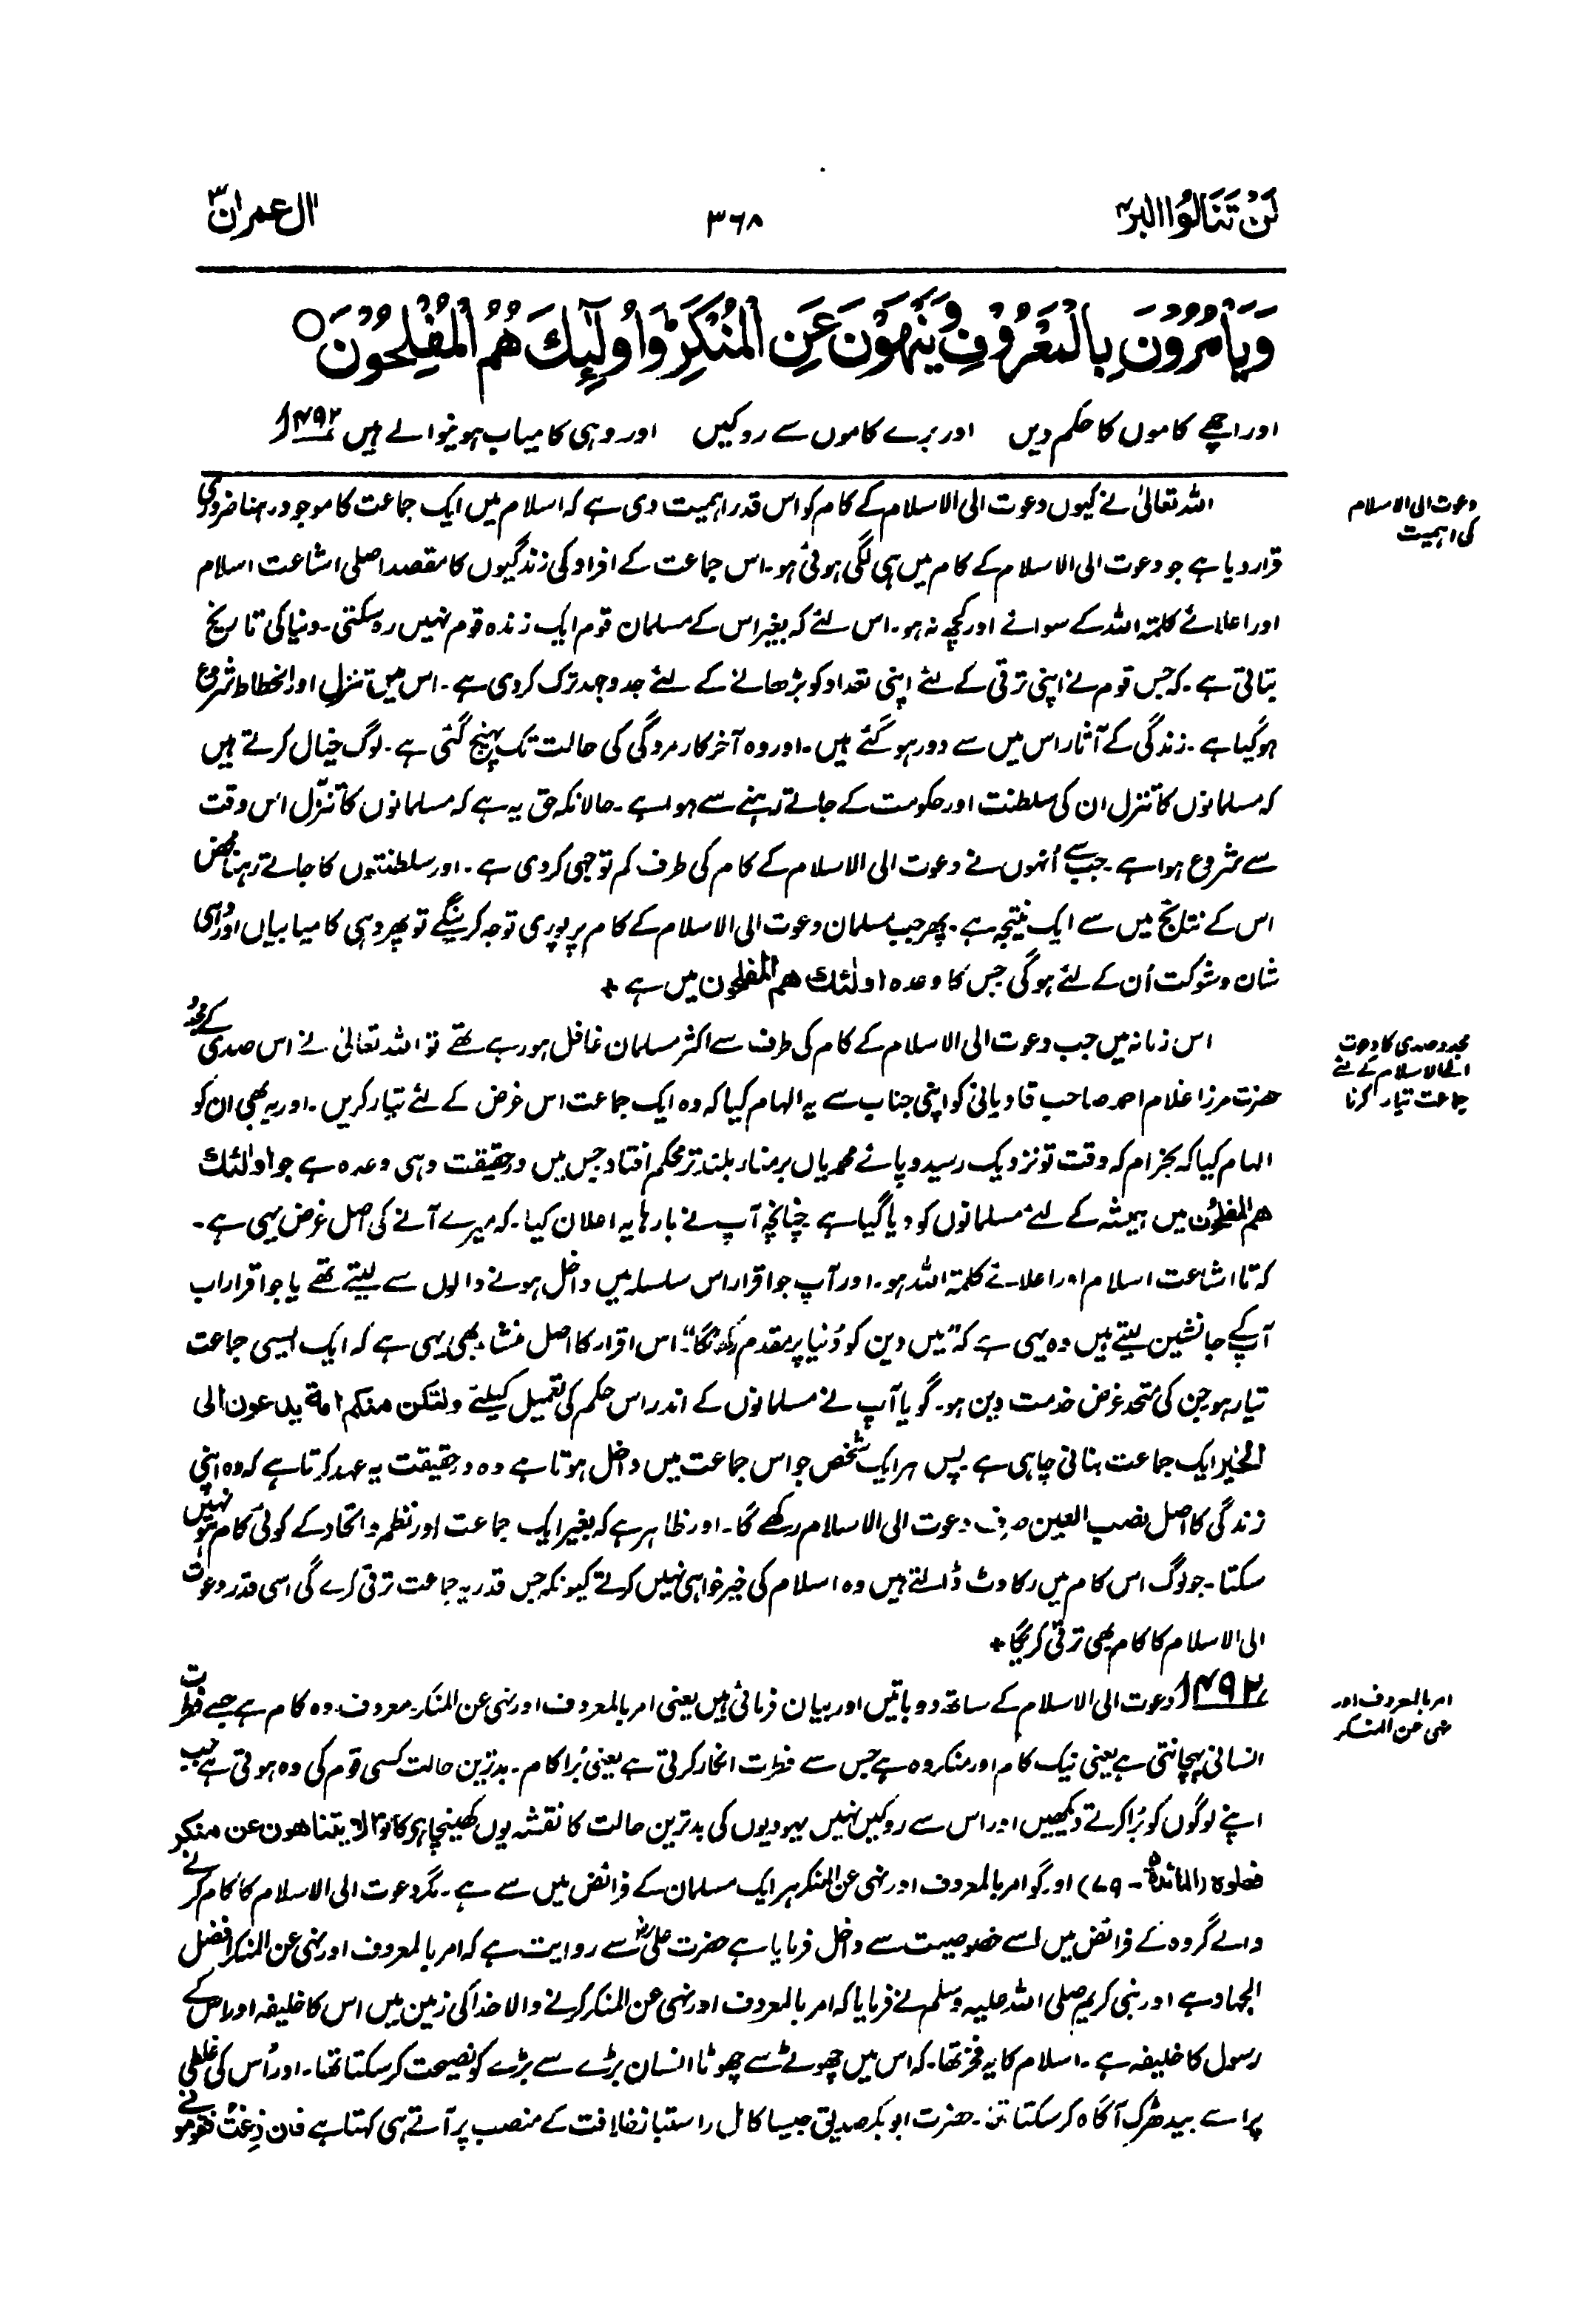 لَنْ تَنَالُوا الْبِرَّ ۴
۳۶۸
اٰل عمران ۳
وَيَاْمُرُوْنَ بِالْمَعْرُوْفِ وَيَنْهَوْنَ عَنِ الْمُنْكَرِ ؕ وَاُولٰٓئِكَ هُمُ الْمُفْلِحُوْنَ ○
اور اچھے کاموں کا حکم دیں اور برے کاموں سے روکیں اور وہی کامیاب ہونیوالے ہیں ۴۹۲
دعوت الی الاسلام
کی اہمیت
اللہ تعالیٰ نے کیوں دعوت الی الاسلام کے کام کو اس قدر اہمیت دی ہے کہ اسلام میں ایک جماعت کا موجود رہنا ضروری
قرار دیا ہے جو دعوت الی الاسلام کے کام میں ہی لگی ہوئی ہو۔ اس جماعت کے افراد کی زندگیوں کا مقصد اصلی اشاعت اسلام
اور اعلائے کلمۃ اللہ کے سوائے اور کچھ نہ ہو۔ اس لئے کہ بغیر اس کے مسلمان قوم ایک زندہ قوم نہیں رہ سکتی۔ دنیا کی تاریخ
بتاتی ہے۔ کہ جس قوم نے اپنی ترقی کے لئے اپنی تعداد کو بڑھانے کے لئے جدوجہد ترک کر دی ہے۔ اس میں تنزل اور انحطاط شروع
ہوگیا ہے۔ زندگی کے آثار اس میں سے دور ہو گئے ہیں۔ اور وہ آخر کار مردگی کی حالت تک پہنچ گئی ہے۔ لوگ خیال کرتے ہیں
کہ مسلمانوں کا تنزل ان کی سلطنت اور حکومت کے جاتے رہنے سے ہوا ہے۔ حالانکہ حق یہ ہے کہ مسلمانوں کا تنزّل اُس وقت
سے شروع ہوا ہے۔ جب سے اُنہوں نے دعوت الی الاسلام کے کام کی طرف کم توجہی کر دی ہے۔ اور سلطنتوں کا جاتے رہنا محض
اس کے نتائج میں سے ایک نتیجہ ہے۔ پھر جب مسلمان دعوت الی الاسلام کے کام پر پوری توجہ کرینگے تو پھر وہی کامیابیاں اور وہی
شان و شوکت اُن کے لئے ہوگی جس کا وعدہ اولٰئك هم المفلحون میں ہے +
مجدد صدی کا دعوت
الی الاسلام کے لئے
جماعت تیار کرنا
اس زمانہ میں جب دعوت الی الاسلام کے کام کی طرف سے اکثر مسلمان غافل ہو رہے تھے تو اللہ تعالیٰ نے اس صدی کے مجدد
حضرت مرزا غلام احمد صاحب قادیانی کو اپنی جناب سے یہ الہام کیا کہ وہ ایک جماعت اس غرض کے لئے تیار کریں۔ اور یہ بھی ان کو
الہام کیا کہ بخرام کہ وقت تو نزدیک رسید و پائے محمدیاں بر منار بلندتر محکم افتاد جس میں درحقیقت وہی وعدہ ہے جو اولٰئك
هم المفلحون میں ہمیشہ کے لئے مسلمانوں کو دیا گیا ہے چنانچہ آپ نے بارہا یہ اعلان کیا۔ کہ میرے آنے کی اصل غرض یہی ہے۔
کہ تا اشاعت اسلام اور اعلائے کلمۃ اللہ ہو۔ اور آپ جو اقرار اس سلسلہ میں داخل ہونے والوں سے لیتے تھے یا جو اقرار اب
آپ کے جانشین لیتے ہیں وہ یہی ہے کہ "میں دین کو دُنیا پر مقدم رکھونگا"۔ اس اقرار کا اصل منشاء بھی یہی ہے کہ ایک ایسی جماعت
تیار ہو جن کی متحد غرض خدمت دین ہو۔ گویا آپ نے مسلمانوں کے اندر اس حکم کی تعمیل کیلئے ولتكن منكم امة يدعون الى
الخير ایک جماعت بنانی چاہی ہے۔ پس ہر ایک شخص جو اس جماعت میں داخل ہوتا ہے وہ درحقیقت یہ عہد کرتا ہے کہ وہ اپنی
زندگی کا اصل نصب العین صرف دعوت الی الاسلام رکھے گا۔ اور ظاہر ہے کہ بغیر ایک جماعت اور نظم و اتحاد کے کوئی کام ہو نہیں
سکتا۔ جو لوگ اس کام میں رکاوٹ ڈالتے ہیں وہ اسلام کی خیر خواہی نہیں کرتے کیونکہ جس قدر یہ جماعت ترقی کرے گی اسی قدر دعوت
الی الاسلام کا کام بھی ترقی کریگا +
امر بالمعروف اور
نہی عن المنکر
۴۹۲ دعوت الی الاسلام کے ساتھ دو باتیں اور بیان فرمائی ہیں یعنی امر بالمعروف اور نہی عن المنکر۔ معروف وہ کام ہے جسے فطرت
انسانی پہچانتی ہے یعنی نیک کام اور منکر وہ ہے جس سے فطرت انکار کرتی ہے یعنی بُرا کام۔ بدترین حالت کسی قوم کی وہ ہوتی ہے جب
اپنے لوگوں کو بُرا کرتے دیکھیں اور اس سے روکیں نہیں یہودیوں کی بدترین حالت کا نقشہ یوں کھینچا ہے کانوا لا یتناهون عن منكر
فعلوه (المائدة۵-۷۹) اور گو امر بالمعروف اور نہی عن المنکر ہر ایک مسلمان کے فرائض میں سے ہے۔ مگر دعوت الی الاسلام کا کام کرنے
والے گروہ کے فرائض میں اسے خصوصیت سے داخل فرمایا ہے حضرت علیؓ سے روایت ہے کہ امر بالمعروف اور نہی عن المنکر افضل
الجہاد ہے اور نبی کریم صلی اللہ علیہ وسلم نے فرمایا کہ امر بالمعروف اور نہی عن المنکر کرنے والا خدا کی زمین میں اس کا خلیفہ اور اس کے
رسول کا خلیفہ ہے۔ اسلام کا یہ فخر تھا۔ کہ اس میں چھوٹے سے چھوٹا انسان بڑے سے بڑے کو نصیحت کر سکتا تھا۔ اور اُس کی غلطی
پر اسے بیدھڑک آگاہ کر سکتا تھا۔ حضرت ابو بکر صدیق جیسا کامل راستباز خلافت کے منصب پر آتے ہی کہتا ہے فان زِغْتُ فقومونی